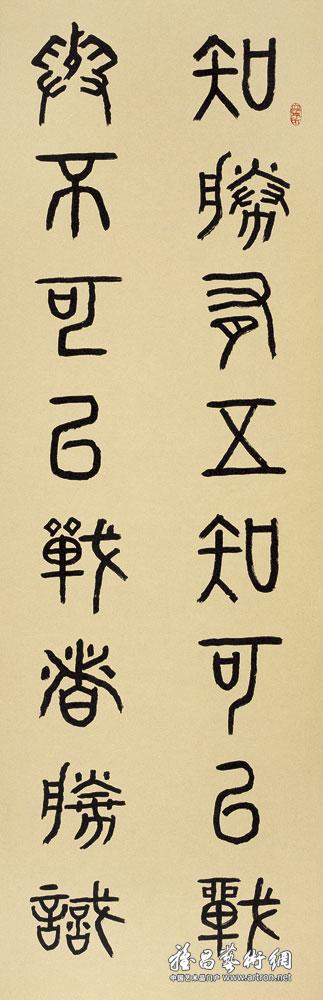 知勝有五知可㠯戰
與不可㠯戰者勝識
雅昌藝術網
中国艺术品门户 www.artron.net